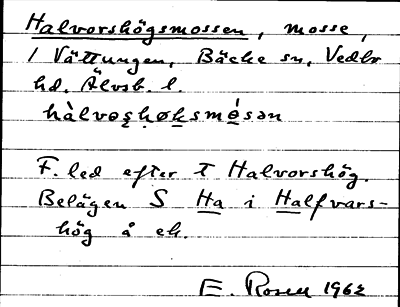 Halvorshögsmossen, mosse,
/ Vättungen, Bäcke sn, Vedbo
hd. Älvsb. l.
hàlvoʂhøksmósən
F. led efter T Halvorshög.
Belägen S Ha i Halfvars-
hög å ek.
E. Rosen 1962